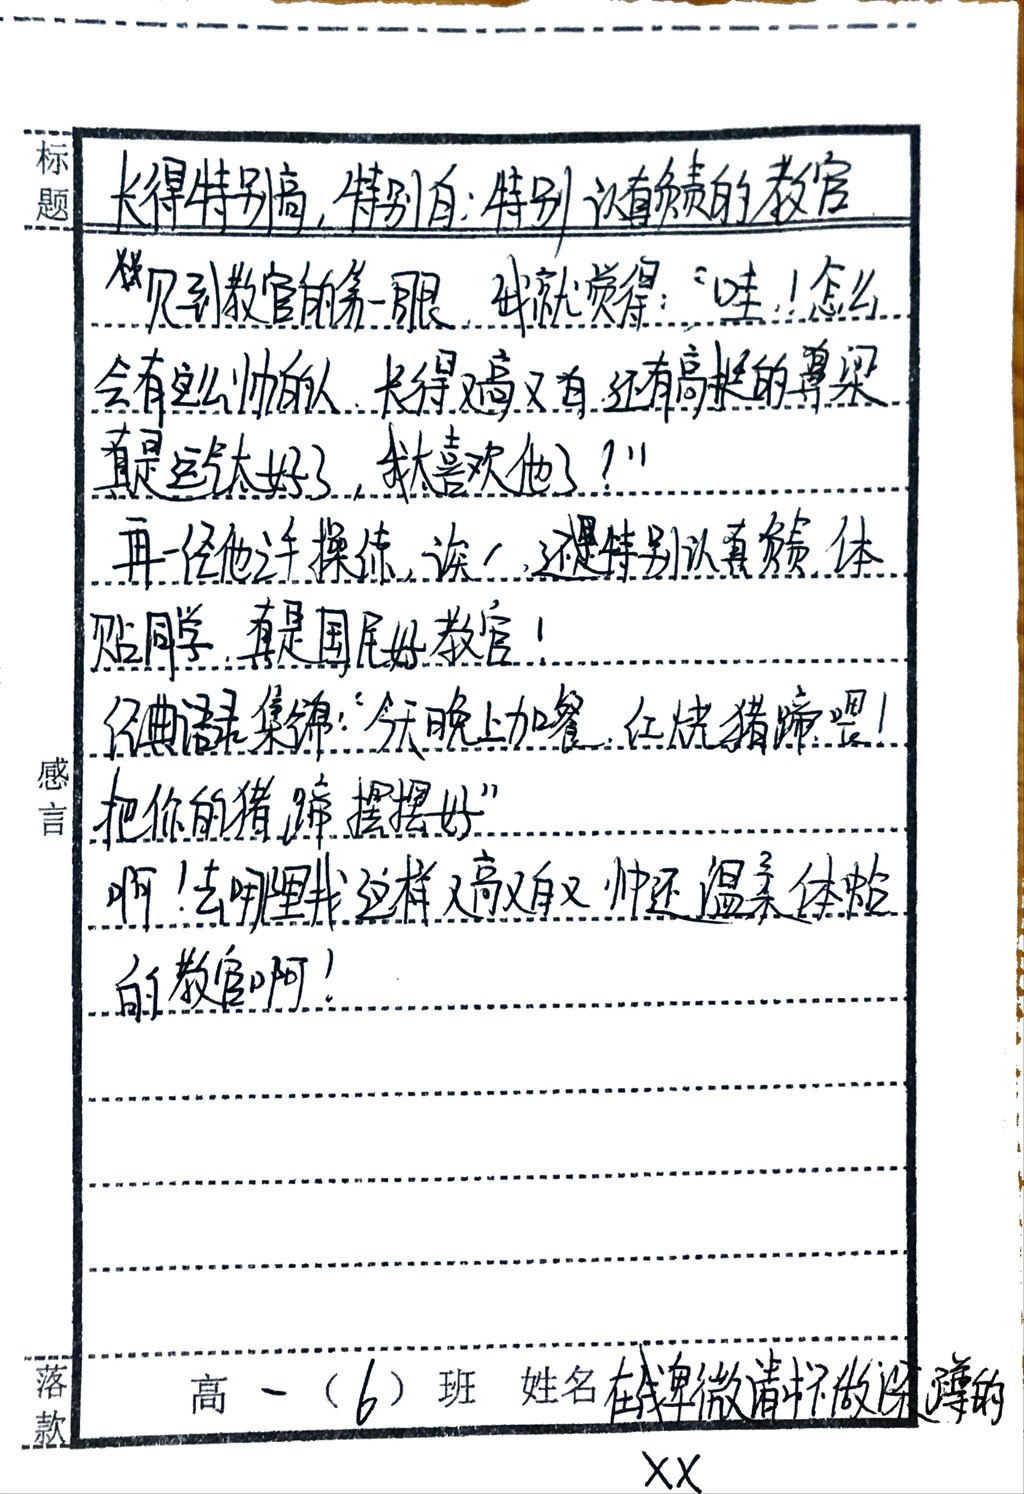 标题
长得特别高，特别白；特别认真负责的教官
见到教官的第一眼，我就觉得：“哇！怎么
会有这么帅的人，长得又高又白，还有高挺的鼻梁
真是运气太好了，我太喜欢他了？”
再一经他之手操练，诶！，还是特别认真负责，体
贴同学，真是国民好教官！
经典语录集锦：“今天晚上加餐，红烧猪蹄喂！
感言
把你的猪蹄摆摆好”
啊！去哪里找这样又高又白又帅还温柔体贴
的教官啊！
落款
高一（6）班 姓名
XX